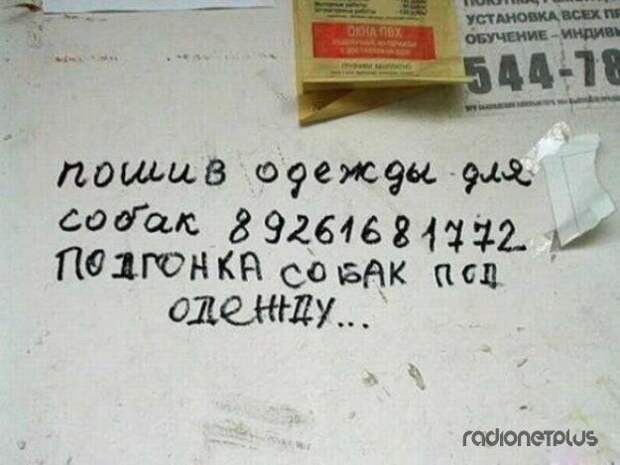 ОКНА ПВХ
УСТАНОВКА ВСЕХ
ОБУЧЕНИЕ - ИНДИВИ
544-78
пошив одежды для
собак 89261681772
ПОДГОНКА СОБАК ПОД
ОДЕЖДУ...
radionetplus